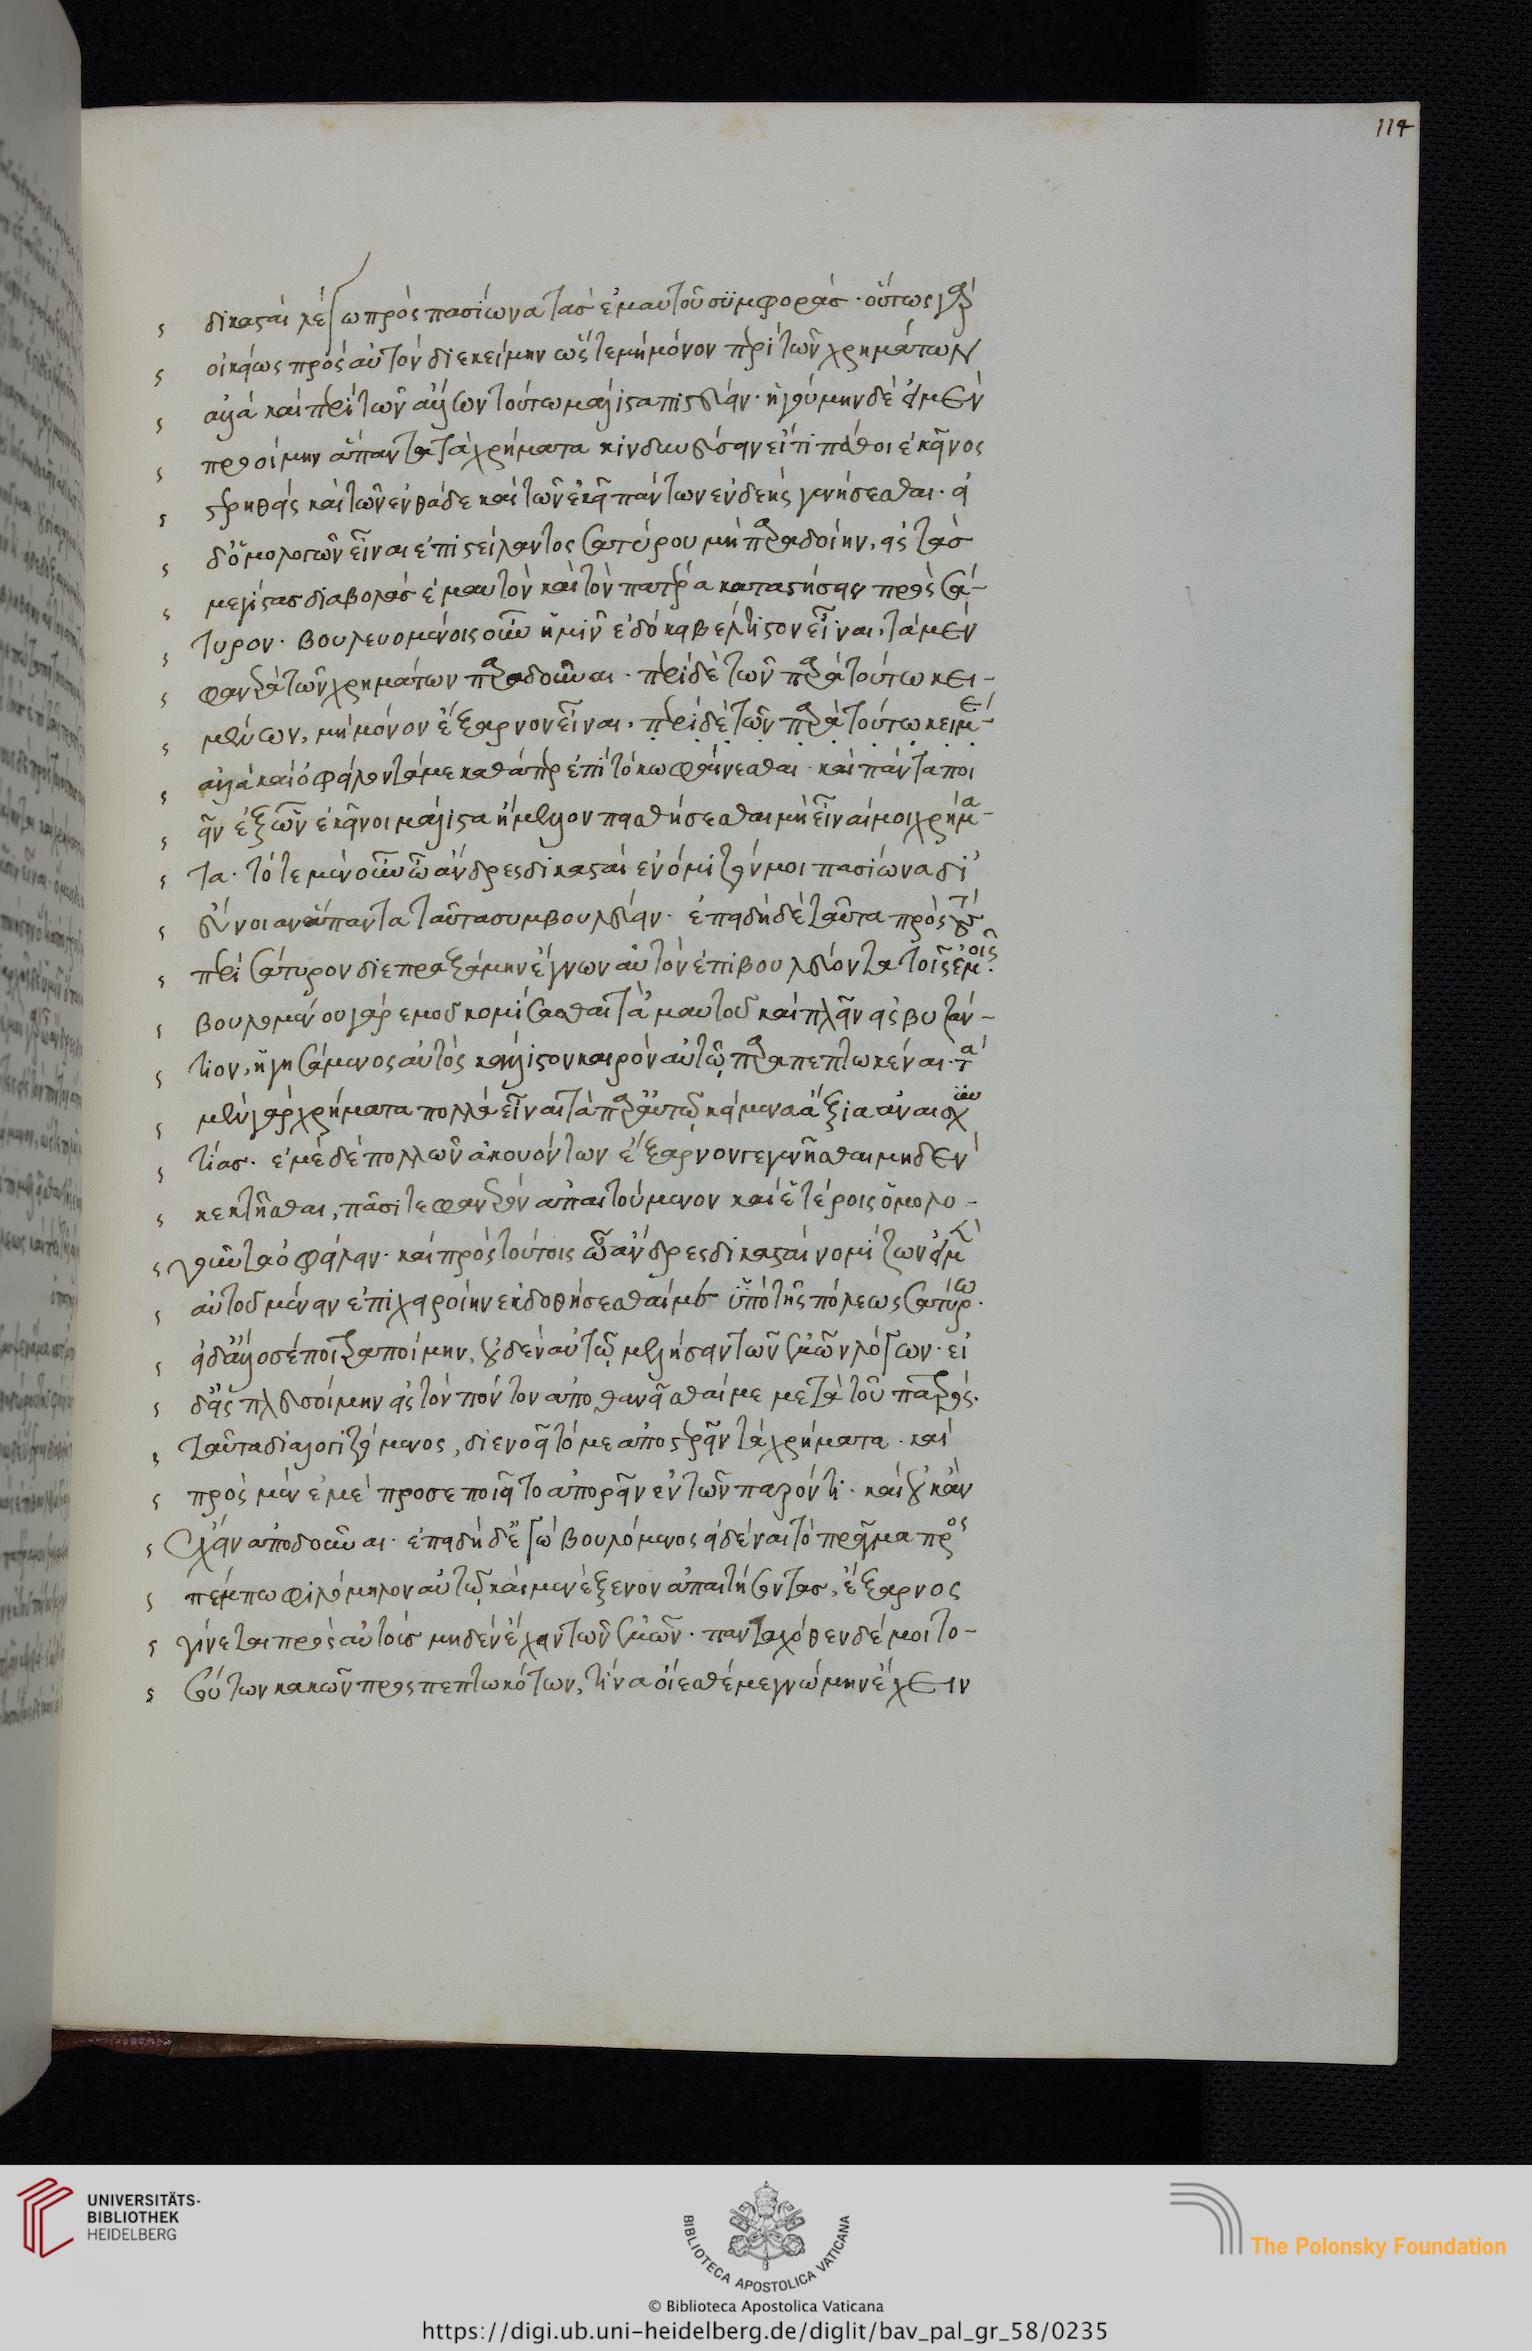 114
δικασταὶ λέγω πρὸς πασίωνα τὰς ἐμαυτοῦ συμφοράς· οὕτως γὰρ
οἰκείως πρὸς αὐτὸν διεκείμην ὥστε μὴ μόνον περὶ τῶν χρημάτων
ἀλλὰ καὶ περὶ τῶν ἄλλων τούτω μάλιστα πιστεύειν· ἡγούμην δὲ εἰ μὲν
προοίμην ἅπαντα τὰ χρήματα κινδυνεύσειν εἴ τι πάθοι ἐκεῖνος
στερηθεὶς καὶ τῶν ἐνθάδε καὶ τῶν ἐκεῖ πάντων ἐνδεὴς γενήσεσθαι· εἰ
δ' ὁμολογῶν εἶναι ἐπιστείλαντος σατύρου μὴ παραδοίην, εἰς τὰς
μεγίστας διαβολὰς ἐμαυτὸν καὶ τὸν πατέρα καταστήσειν πρὸς σά-
τυρον· βουλευομένοις οὖν ἡμῖν ἐδόκει βέλτιστον εἶναι, τὰ μὲν
φανερὰ τῶν χρημάτων παραδοῦναι· περὶ δὲ τῶν παρὰ τούτω κει-
μένων, μὴ μόνον ἔξαρνον εἶναι, περὶ δὲ τῶν παρὰ τούτω κειμέ-
ἀλλὰ καὶ ὀφείλοντά με καθάπερ ἐπὶ τόκω φαίνεσθαι· καὶ πάντα ποι
εῖν ἐξ ὧν ἐκεῖνοι μάλιστα ἤμελλον πεισθήσεσθαι μὴ εἶναί μοι χρήμα-
τα· τότε μὲν οὖν ὦ ἄνδρες δικασταὶ ἐνόμιζόν μοι πασίωνα δι'
εὔνοιαν ἅπαντα ταῦτα συμβουλεύειν· ἐπειδὴ δὲ ταῦτα πρὸς τοὺς
περὶ σάτυρον διεπραξάμην ἔγνων αὐτὸν ἐπιβουλεύοντα τοῖς ἐμοῖς.
βουλομένου γὰρ ἐμοῦ κομίσασθαι τὰ 'μαυτοῦ καὶ πλεῖν εἰς βυζάν-
τιον, ἡγησάμενος αὐτὸς κάλλιστον καιρὸν αὐτῷ παραπεπτωκέναι· τὰ
μὲν γὰρ χρήματα πολλὰ εἶναι τὰ παρ' αὐτῷ κείμενα ἄξια ἀναισχυν
τίας· ἐμὲ δὲ πολλῶν ἀκουόντων ἔξαρνον γεγενῆσθαι μηδὲν
κεκτῆσθαι, πᾶσί τε φανερὸν ἀπαιτούμενον καὶ ἑτέροις ὁμολο-
γοῦντα ὀφείλειν· καὶ πρὸς τούτοις ὦ ἄνδρες δικασταὶ νομίζων εἰ μὲν
αὐτοῦ μένειν ἐπιχειροίην ἐκδοθήσεσθαί με ὑπὸ τῆς πόλεως σατύρω.
εἰ δ' ἄλλοσέ ποι τραποίμην, οὐδὲν αὐτῷ μελήσειν τῶν ἐμῶν λόγων· εἰ
δ' εἰς πλευσοίμην εἰς τὸν πόντον ἀποθανεῖσθαί με μετὰ τοῦ πατρός.
ταῦτα διαλογιζόμενος, διενοεῖτό με ἀποστερεῖν τὰ χρήματα· καὶ
πρὸς μὲν ἐμὲ προσεποιεῖτο ἀπορεῖν ἐν τῶν παρόντι· καὶ οὐκ ἂν
ἔχειν ἀποδοῦναι· ἐπειδὴ δ' ἐγὼ βουλόμενος εἰδέναι τὸ πρᾶγμα προσ
πέμπω φιλόμηλον αὐτῷ καὶ μενέξενον ἀπαιτήσοντας, ἔξαρνος
γίνεται πρὸς αὐτοὺς μηδὲν ἔχειν τῶν ἐμῶν· πανταχόθεν δέ μοι το-
σούτων κακῶν προσπεπτωκότων, τίνα οἴεσθέ με γνώμην ἔχειν
UNIVERSITÄTS-
BIBLIOTHEK
HEIDELBERG
BIBLIOTECA APOSTOLICA VATICANA
The Polonsky Foundation
© Biblioteca Apostolica Vaticana
https://digi.ub.uni-heidelberg.de/diglit/bav_pal_gr_58/0235